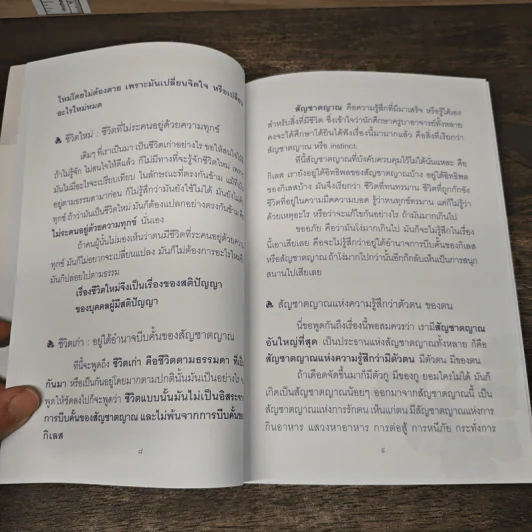 ใหม่โดยไม่ต้องตาย เพราะมันเปลี่ยนจิตใจ หรือเปลี่ยน
อะไรใหม่หมด
ชีวิตใหม่ : ชีวิตที่ไม่ระคนอยู่ด้วยความทุกข์
เดิมๆ ที่เราเป็นมา เป็นชีวิตเก่าอย่างไร ขอให้สนใจให้ดี
ถ้าไม่รู้จัก ไม่สนใจให้ดีแล้ว ก็ไม่มีทางที่จะรู้จักชีวิตใหม่ เพราะ
มันไม่มีอะไรจะเปรียบเทียบ ในลักษณะที่ตรงกันข้าม แม้ที่เป็น
อยู่ตามธรรมดามาก่อน ก็ไม่รู้สึกว่ามันยังใช้ไม่ได้ มันยังเป็น
ทุกข์ ถ้าว่ามันเป็นชีวิตใหม่ มันก็ต้องแปลกอย่างตรงกันข้าม คือ
ไม่ระคนอยู่ด้วยความทุกข์ นั่นเอง
ถ้าคนผู้นั้นไม่มองเห็นว่าตนมีชีวิตที่ระคนอยู่ด้วยความ
ทุกข์ มันก็ไม่อยากจะเปลี่ยนแปลง มันก็ไม่ต้องการอะไรใหม่
มันก็ปล่อยไปตามธรรม
เรื่องชีวิตใหม่จึงเป็นเรื่องของสติปัญญา
ของบุคคลผู้มีสติปัญญา
ชีวิตเก่า : อยู่ใต้อำนาจบีบคั้นของสัญชาตญาณ
ทีนี้จะพูดถึง ชีวิตเก่า คือชีวิตตามธรรมดา ที่เป็น
กันมา หรือเป็นกันอยู่โดยมากตามปกตินั้นมันเป็นอย่างไร
พูดให้ชัดลงไปก็จะพูดว่า ชีวิตแบบนั้นมันไม่เป็นอิสระจาก
การบีบคั้นของสัญชาตญาณ และไม่พ้นจากการบีบคั้นของ
กิเลส
๘
สัญชาตญาณ คือความรู้สึกที่มีมาเสร็จ หรือรู้ได้เอง
สำหรับสิ่งที่มีชีวิต ซึ่งเข้าใจว่านักศึกษาครูบาอาจารย์ทั้งหลาย
คงจะได้ศึกษาได้ยินได้ฟังเรื่องนี้มามากแล้ว คือสิ่งที่เรียกว่า
สัญชาตญาณ หรือ instinct.
ทีนี้สัญชาตญาณที่บังคับควบคุมไว้ไม่ได้นั่นแหละ คือ
กิเลส เรายังอยู่ใต้อิทธิพลของสัญชาตญาณบ้าง อยู่ใต้อิทธิพล
ของกิเลสบ้าง มันจึงเรียกว่า ชีวิตที่ทนทรมาน ชีวิตที่ถูกกักขัง
ชีวิตที่อยู่ในความมืดความบอด รู้ว่าทนทุกข์ทรมาน แต่ก็ไม่รู้ว่า
ด้วยเหตุอะไร หรือว่าจะแก้ไขกันอย่างไร ถ้ามันมากเกินไป
ขออภัย คือว่ามันโง่มากเกินไป มันก็จะไม่รู้สึกในเรื่อง
นี้เอาเสียเลย คือจะไม่รู้สึกว่าอยู่ใต้อำนาจการบีบคั้นของกิเลส
หรือสัญชาตญาณ ถ้าโง่มากไปกว่านั้นอีกก็กลับเห็นเป็นการสนุก
สนานไปเสียเลย
สัญชาตญาณแห่งความรู้สึกว่าตัวตน ของตน
นี่ขอพูดกันถึงเรื่องนี้พอสมควรว่า เรามีสัญชาตญาณ
อันใหญ่ที่สุด เป็นประธานแห่งสัญชาตญาณทั้งหลาย ก็คือ
สัญชาตญาณแห่งความรู้สึกว่ามีตัวตน มีตัวตน มีของตน
ถ้าเดือดจัดขึ้นมาก็มีตัวกู มีของกู ยอมใครไม่ได้ มันก็
เกิดเป็นสัญชาตญาณน้อยๆ ออกมาจากสัญชาตญาณนี้ เป็น
สัญชาตญาณแห่งการรักตน เห็นแก่ตน มีสัญชาตญาณแห่งการ
กินอาหาร แสวงหาอาหาร การต่อสู้ การหนีภัย กระทั่งการ
๙